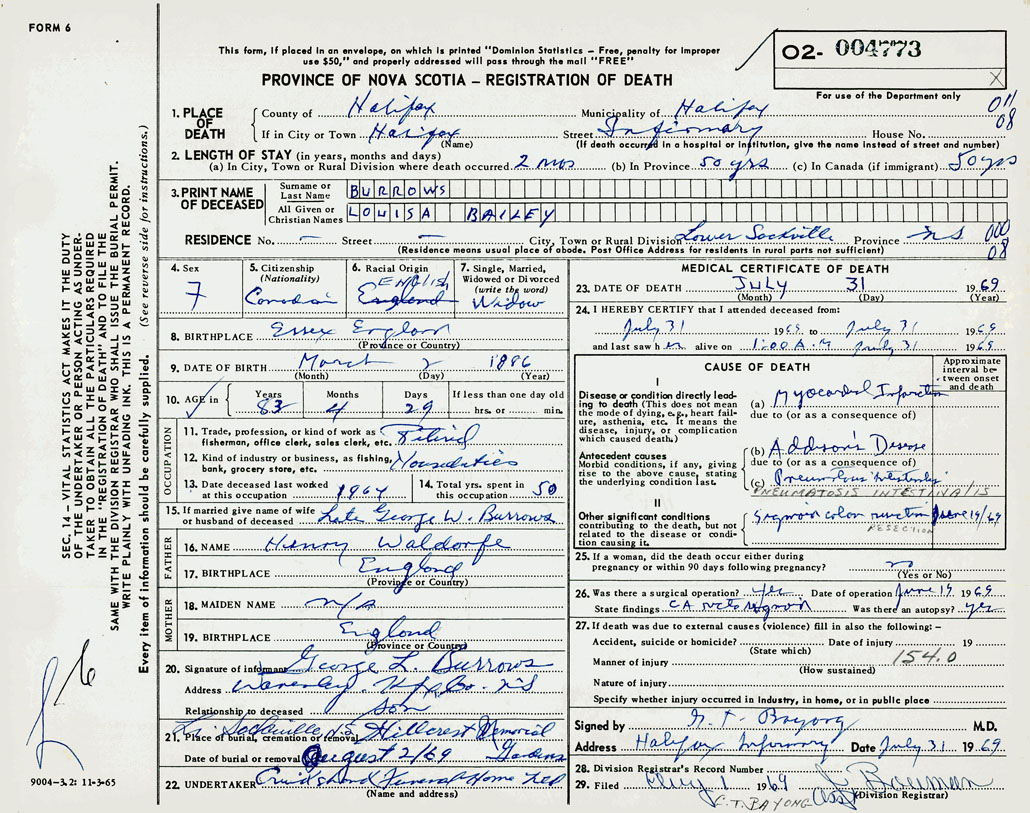 FORM 6
This form, if placed in an envelope, on which is printed "Dominion Statistics – Free, penalty for improper
use $50," and properly addressed will pass through the mail "FREE"
PROVINCE OF NOVA SCOTIA – REGISTRATION OF DEATH
O2- 004773
X
For use of the Department only
1. PLACE OF DEATH
County of Halifax Municipality of Halifax 011
If in City or Town Halifax Street Infirmary House No. 08
(Name) (If death occurred in a hospital or institution, give the name instead of street and number)
2. LENGTH OF STAY (in years, months and days)
(a) In City, Town or Rural Division where death occurred 2 mos (b) In Province 50 yrs (c) In Canada (if immigrant) 50 yrs
3. PRINT NAME OF DECEASED
Surname or Last Name BURROWS
All Given or Christian Names LOUISA BAILEY
RESIDENCE No. — Street — City, Town or Rural Division Lower Sackville Province N.S. 000
(Residence means usual place of abode. Post Office Address for residents in rural parts not sufficient) 08
4. Sex F
5. Citizenship (Nationality) Canadian
6. Racial Origin ENGLISH England
7. Single, Married, Widowed or Divorced (write the word) Widow
8. BIRTHPLACE Essex England
(Province or Country)
9. DATE OF BIRTH March 2 1886
(Month) (Day) (Year)
10. AGE in Years 83 Months 4 Days 29 If less than one day old hrs. or min.
OCCUPATION
11. Trade, profession, or kind of work as fisherman, office clerk, sales clerk, etc. Retired
12. Kind of industry or business, as fishing, bank, grocery store, etc. Household
13. Date deceased last worked at this occupation 1964
14. Total yrs. spent in this occupation 50
15. If married give name of wife or husband of deceased Late George W. Burrows
FATHER
16. NAME Henry Waldorfe
17. BIRTHPLACE England
(Province or Country)
MOTHER
18. MAIDEN NAME n/a
19. BIRTHPLACE England
(Province or Country)
20. Signature of informant George L. Burrows
Address Waverley Hfx Co. N.S
Relationship to deceased Son
21. Place of burial, cremation or removal Lr Sackville N.S. Hillcrest Memorial Gardens
Date of burial or removal August 2/69
22. UNDERTAKER Cruikshank Funeral Home Ltd
(Name and address)
MEDICAL CERTIFICATE OF DEATH
23. DATE OF DEATH JULY 31 1969
(Month) (Day) (Year)
24. I HEREBY CERTIFY that I attended deceased from:
July 31 1969 to July 31 1969
and last saw her alive on 1:00 A.M July 31 1969
CAUSE OF DEATH
Approximate interval between onset and death
I
Disease or condition directly leading to death (This does not mean the mode of dying, e.g., heart failure, asthenia, etc. It means the disease, injury, or complication which caused death.)
(a) Myocardial Infarction
due to (or as a consequence of)
Antecedent causes
Morbid conditions, if any, giving rise to the above cause, stating the underlying condition last.
(b) Addison's Disease
due to (or as a consequence of)
(c) Pneumatosis Intestinalis
PNEUMATOSIS INTESTINALIS
II
Other significant conditions contributing to the death, but not related to the disease or condition causing it.
Sigmoid colon resection June 19/69
RESECTION
25. If a woman, did the death occur either during pregnancy or within 90 days following pregnancy? no
(Yes or No)
26. Was there a surgical operation? yes Date of operation June 19 1969
State findings CA recto sigmoid Was there an autopsy? yes
27. If death was due to external causes (violence) fill in also the following:–
Accident, suicide or homicide? Date of injury 19
(State which)
Manner of injury 154.0
(How sustained)
Nature of injury
Specify whether injury occurred in industry, in home, or in public place
Signed by G. T. Bayong M.D.
Address Halifax Infirmary Date July 31 1969
28. Division Registrar's Record Number
29. Filed Aug 1 1969 J. Bauman
G.T. BAYONG Asst (Division Registrar)
SEC. 14 – VITAL STATISTICS ACT MAKES IT THE DUTY
OF THE UNDERTAKER OR PERSON ACTING AS UNDER-
TAKER TO OBTAIN ALL THE PARTICULARS REQUIRED
IN THE "REGISTRATION OF DEATH" AND TO FILE THE
SAME WITH THE DIVISION REGISTRAR WHO SHALL ISSUE THE BURIAL PERMIT.
WRITE PLAINLY WITH UNFADING INK. THIS IS A PERMANENT RECORD.
Every item of information should be carefully supplied. (See reverse side for instructions.)
9004–3.2: 11-3-65